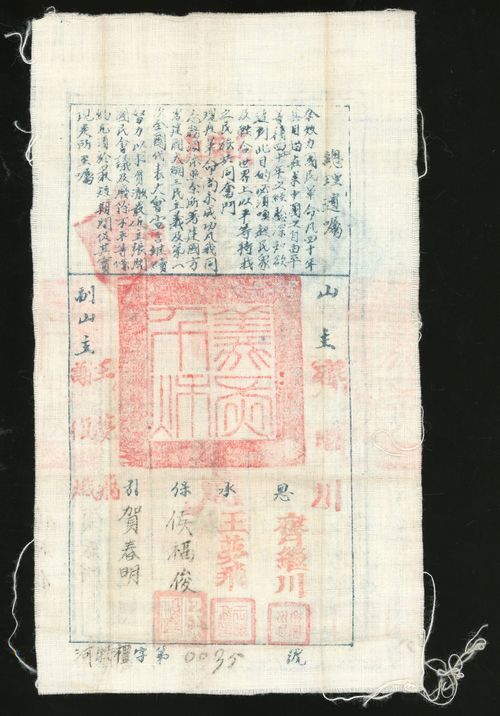 總理遺囑
余致力國民革命凡四十年
其目的在求中國之自由平
等積四十年之經驗深知欲
達到此目的必須喚起民衆
及聯合世界上以平等待我
之民族共同奮鬥
現在革命尚未成功凡我同
志務須依照余所著建國方
畧建國大綱三民主義及第一
次全國代表大會宣言繼續
努力以求貫徹最近主張開
國民會議及廢除不平等條
約尤須於最短期間促其實
現是所至囑
山主 齊繼川
副山主
恩 齊繼川
承 王英飛
保 侯福俊
引 賀春明
河 禮字第0035號